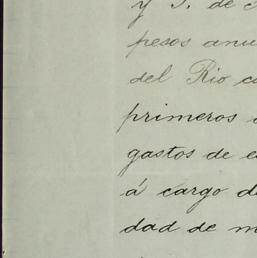 y S. de
pesos anu
del Rio c
primeros
gastos de e
á cargo d
dad de m